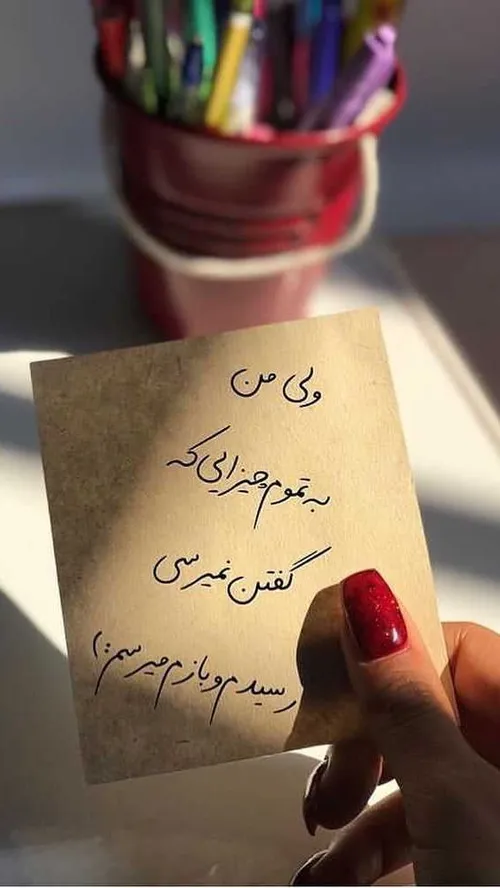 ولی من
به تموم چیزایی که
گفتن نمیرسی
رسیدم و بازم میرسم :)